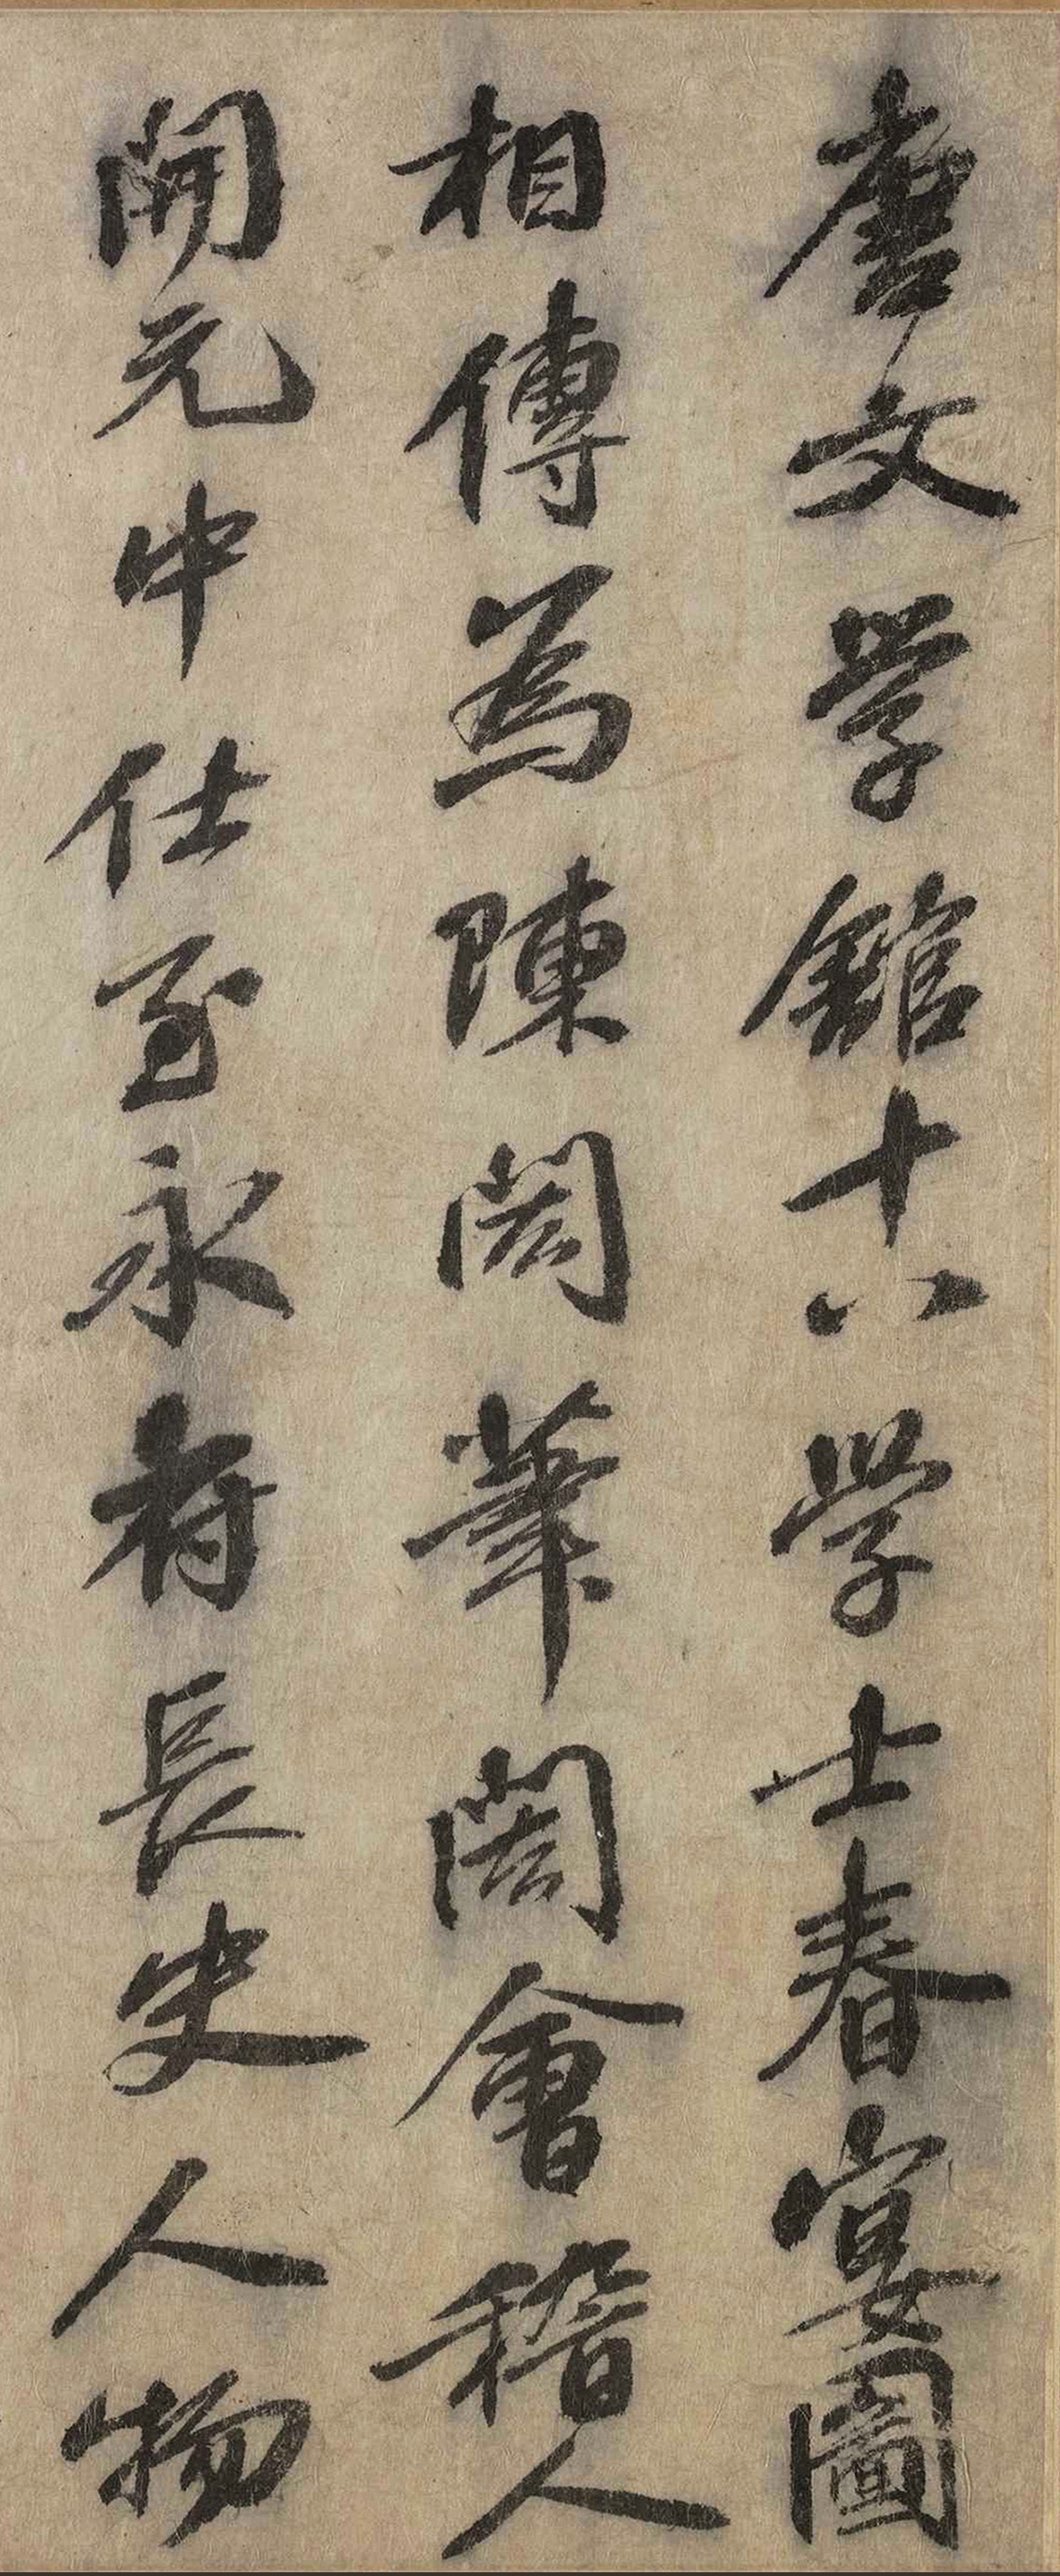 唐文学館十八学士春宴圖
相傳為陳閎筆閎會稽人
開元中仕至永府長史人物